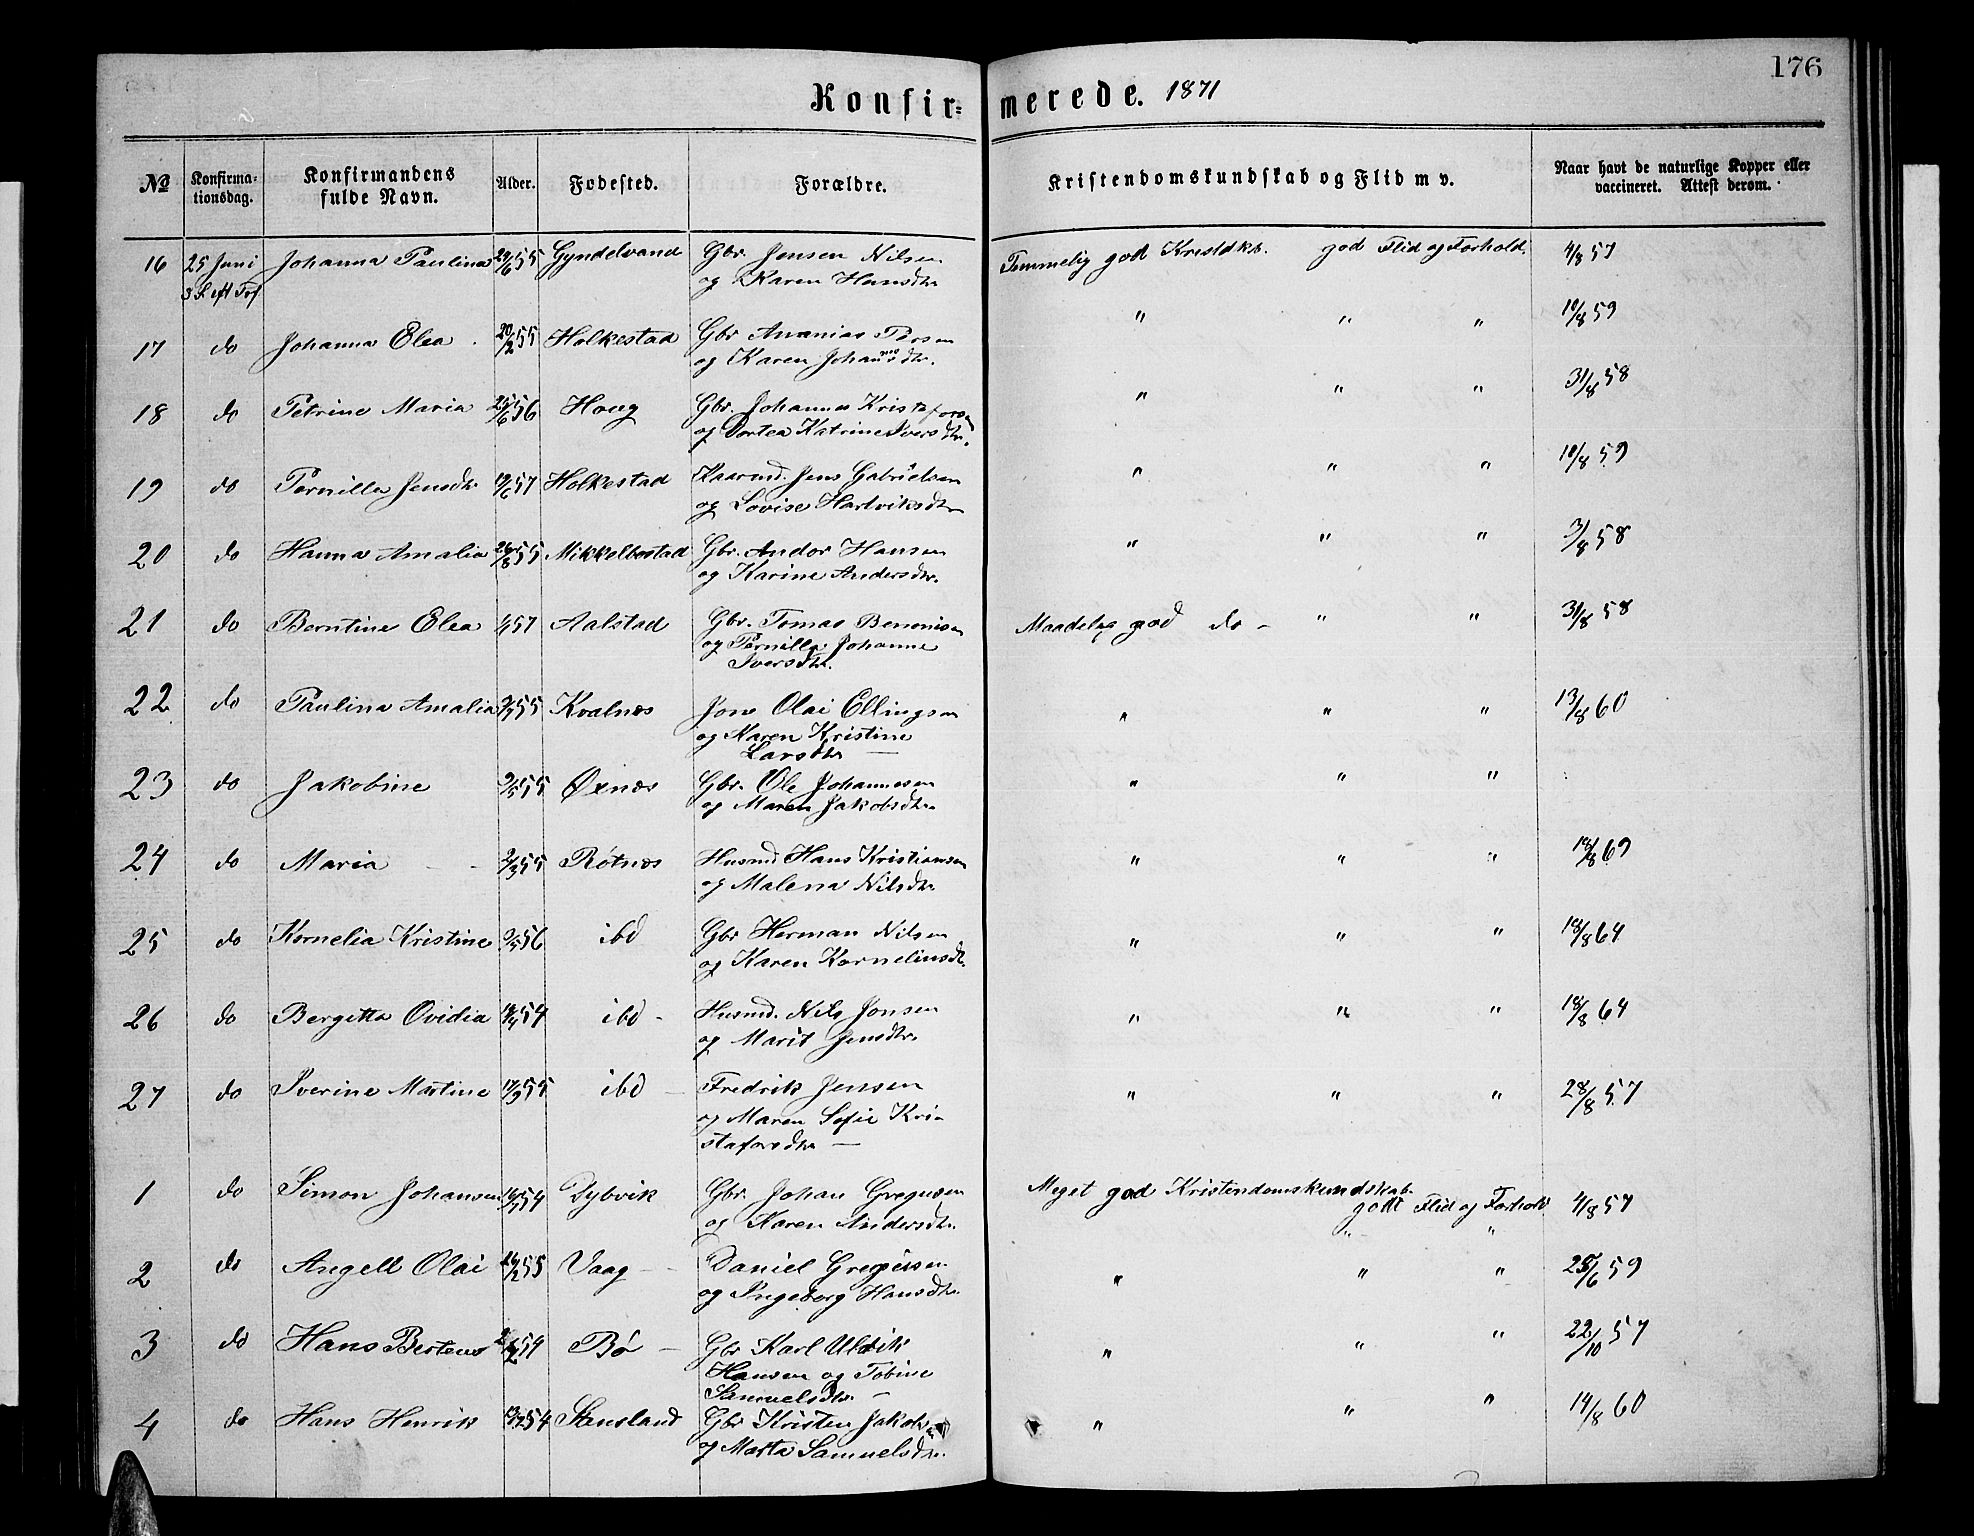 176
Konfir= merede. 1871
No Konfirma- tionsdag. Konfirmandens fulde Navn. Alder. Fødested. Forældre. Kristendomskundskab og Flid m v. Naar havt de naturlige Kopper eller vaccineret. Attest derom.
16 25 Juni Johanna Paulina 29/6 55 Gyndelvand Gbr. Jensen Nilsen Temmelig god Kristdkb. god Flid og Forhold. 4/8 57
3 S. eft Tref og Karen Hansdtr
17 do Johanna Elea 20/2 55 Holkestad Gbr Ananias Persen " " " 10/8 59
og Karen Johannesdtr.
18 do Petrine Maria 25/6 56 Houg Gbr. Johannes Kristaforsen " " " 31/8 58
og Dortea Katrine Iversdtr.
19 do Pernilla Jensdtr 19/6 57 Holkestad Kaarmd. Jens Gabrielsen " " " 10/8 59
og Lovise Hartviksdtr
20 do Hanna Amalia 26/8 55 Mikkelbostad Gbr. Andor Hansen " " " 3/8 58
og Karine Andersdtr.
21 do Berntine Elea 57 Aalstad Gbr. Tomas Benonisen Maadelig god do - " " 31/8 58
og Pernilla Johanne
Iversdtr.
22 do Paulina Amalia 55 Kvalnes Jon Olai Ellingsen " " " 13/8 60
og Karen Kristine
Larsdtr —
23 do Jakobine 9/5 55 Øxnes Gbr. Ole Johannesen " " "
og Maren Jakobsdtr.
24 do Maria - - 2/3 55 Røtnes Husmd Hans Kristiansen " " " 18/8 69
og Malena Nilsdtr
25 do Kornelia Kristine 56 ibd Gbr Herman Nilsen " " " 18/8 64
og Karen Korneliusdtr.
26 do Bergitta Ovidia 54 ibd - Husmd. Nils Jonsen " " " 18/8 64
og Marit Jensdtr.
27 do Iverine Martine 17/9 55 ibd - Fredrik Jensen " " " 28/8 57
og Maren Sofie Kri-
stafersdtr —
1 do Simon Johansen 54 Dybvik Gbr. Johan Gregusen Meget god Kristendomskundskab. godt Flid og Forhold 4/8 57
og Karen Andersdtr. " "
2 do Angell Olai 55 Vaag - Daniel Gregusen " " " 25/6 59
og Ingeborg Hansdtr.
3 do Hans Berteus 54 Bø - Gbr Karl Ulrik " " " 22/10 57
Hansen og Tobine
Samuelsdtr. —
4 do Hans Henrik 54 Stensland Gbr Kristen Jakobsen " " " 14/8 60
og Marta Samuelsdtr.